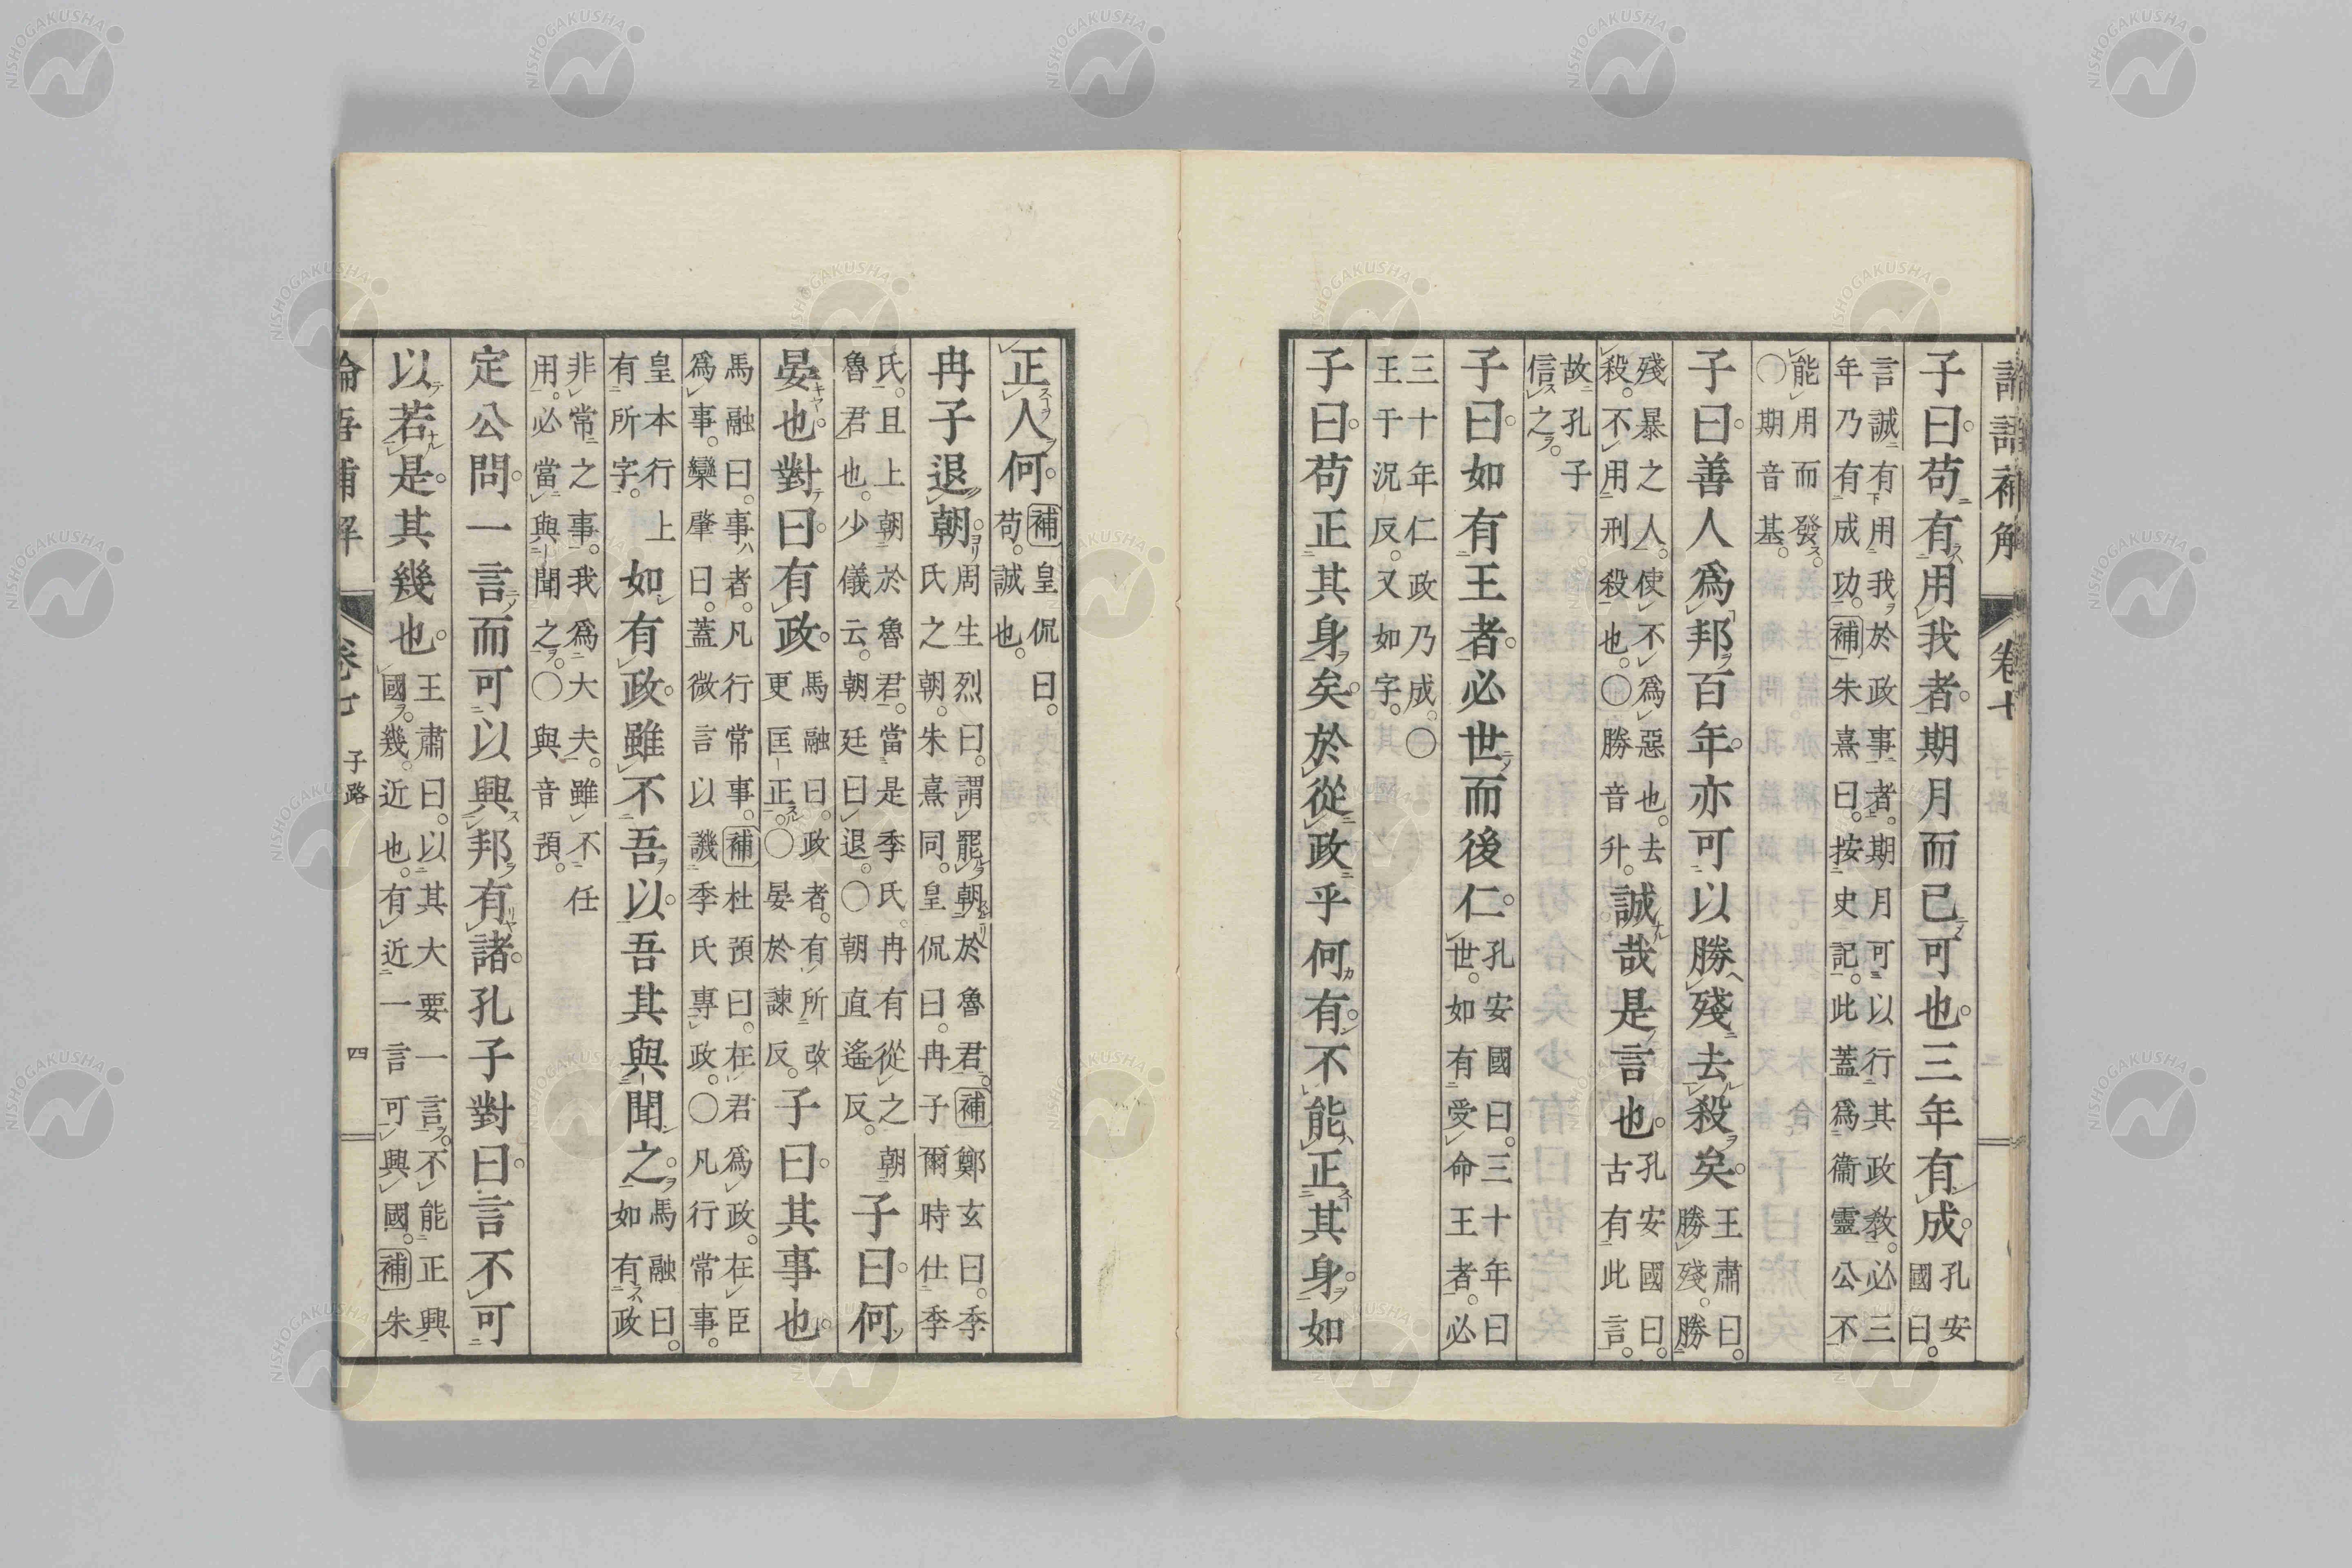 論語補解 卷七
子曰。苟有用我者。期月而已可也。三年有成。孔安國曰。
言誠有用我於政事者。期月可以行其政教。必三
年乃有成功。補朱熹曰。按史記。此蓋爲衞靈公不
能用而發。
〇期音基。
子曰。善人爲邦百年。亦可以勝殘去殺矣。王肅曰。勝殘。勝
殘暴之人。使不爲惡也。去
殺。不用刑殺也。〇勝音升。誠哉是言也。孔安國曰。古有此言。
故孔子
信之。
子曰。如有王者。必世而後仁。孔安國曰。三十年曰世。如有受命王者。必
三十年仁政乃成。〇
王于況反。又如字。
子曰。苟正其身矣。於從政乎何有。不能正其身。如
正人何。補皇侃曰。苟。誠也。
冉子退朝。周生烈曰。謂罷朝於魯君。補鄭玄曰。季
氏之朝。朱熹同。皇侃曰。冉子爾時仕季
氏。且上朝於魯君。當是季氏。冉有從之朝
魯君也。少儀云。朝廷曰退。〇朝直遙反。子曰。何
晏也。對曰。有政。馬融曰。政者。有所改更匡正。〇晏於諫反。子曰。其事也。
馬融曰。事者。凡行常事。補杜預曰。在君爲政。在臣
爲事。欒肇曰。蓋微言以譏季氏專政。〇凡行常事。
皇本行上
有所字。如有政。雖不吾以。吾其與聞之。馬融曰。如有政
非常之事。我爲大夫。雖不任
用。必當與聞之。〇與音預。
定公問。一言而可以興邦有諸。孔子對曰。言不可
以若是。其幾也。王肅曰。以其大要一言。不能正興
國。幾。近也。有近一言可興國。補朱
論語補解 卷七 子路 四